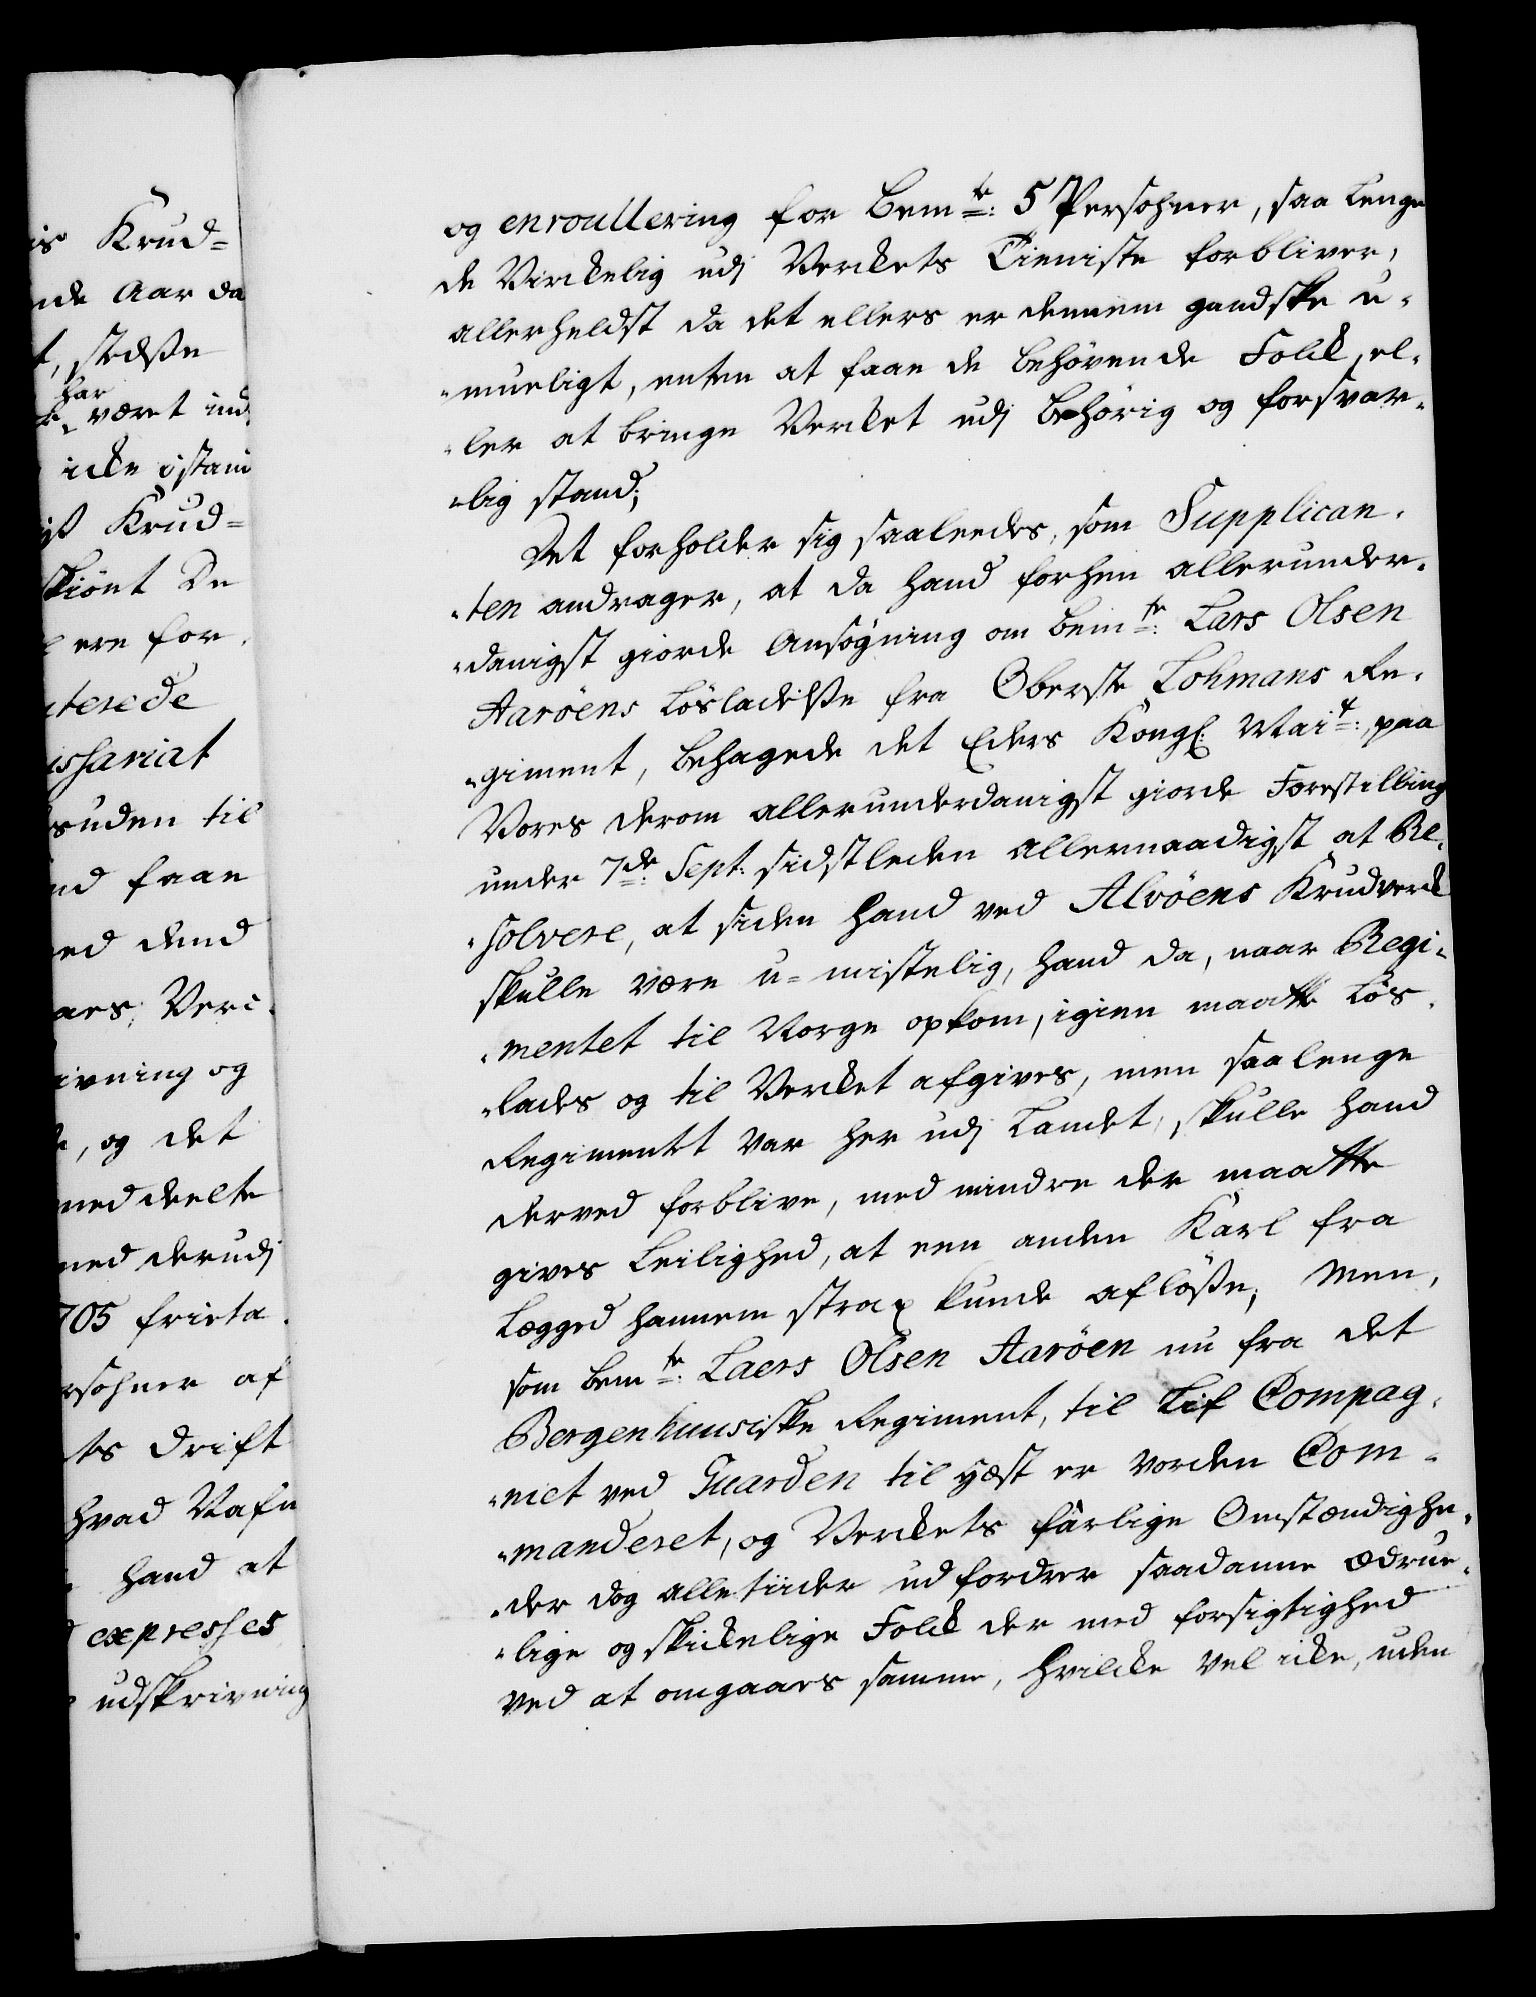 is Krud=
nde Aar da
t, stedse
har
k, været ind
icke istand
ist Krud=
skiönt De
ere for
terede
issariat
suden til
nd faae
ed dend
aes Verc
ivning og
, og det
med deelte
med derudj
705 frieta
rsohner af
ts Drift
hvad Nafn
hand at
expresses
udskrivning
og enroullering for bemte: 5 Persohner, saa lenge
de Virckelig udj Verckets Tieniste forbliver,
allerheldst da det ellers er dennem gandske u-
-mueligt, enten at faae de behövende Folck, el-
-ler at bringe Vercket udj behörig og forsvar-
-lig stand;
Det forholder sig saaleedes, som Supplican-
-ten andrager, at da hand forhen allerunder-
-danigst giorde Ansögning om bemte: Lars Olsen
Aaröens Lösladelsse fra Oberste Lohmans Re-
-giment, behagede det Eders Kongl: Mait:, paa
Vores derom allerunderdanigst giorde Forestilling
under 7de: Sept: sidstleden allernaadigst at Re-
-solvere, at siden hand ved Alvöens Krudverck
skulle være u=mistelig, hand da, naar Regi-
-mentet til Norge opkom, igien maatte lös-
-lades og til Vercket afgives, men saalenge
Regimentet var her udj Landet, skulle hand
derved forblive, med mindre der maatte
gives Leilighed, at een anden Karl fra
Lægged hannem strax kunde aflösse; Men,
som bemte: Laers Olsen Aaröen nu fra det
Bergenhuusiske Regiment, til Lif Compag-
-niet ved Guarden til hæst er vorden Com-
-manderet, og Verckets farlige Omstændighe-
-der dog alle tiider udfordrer saadanne ædrue-
-lige og skickelige Folck der med forsigtighed
ved at omgaaes samme, hvilcke vel icke, uden